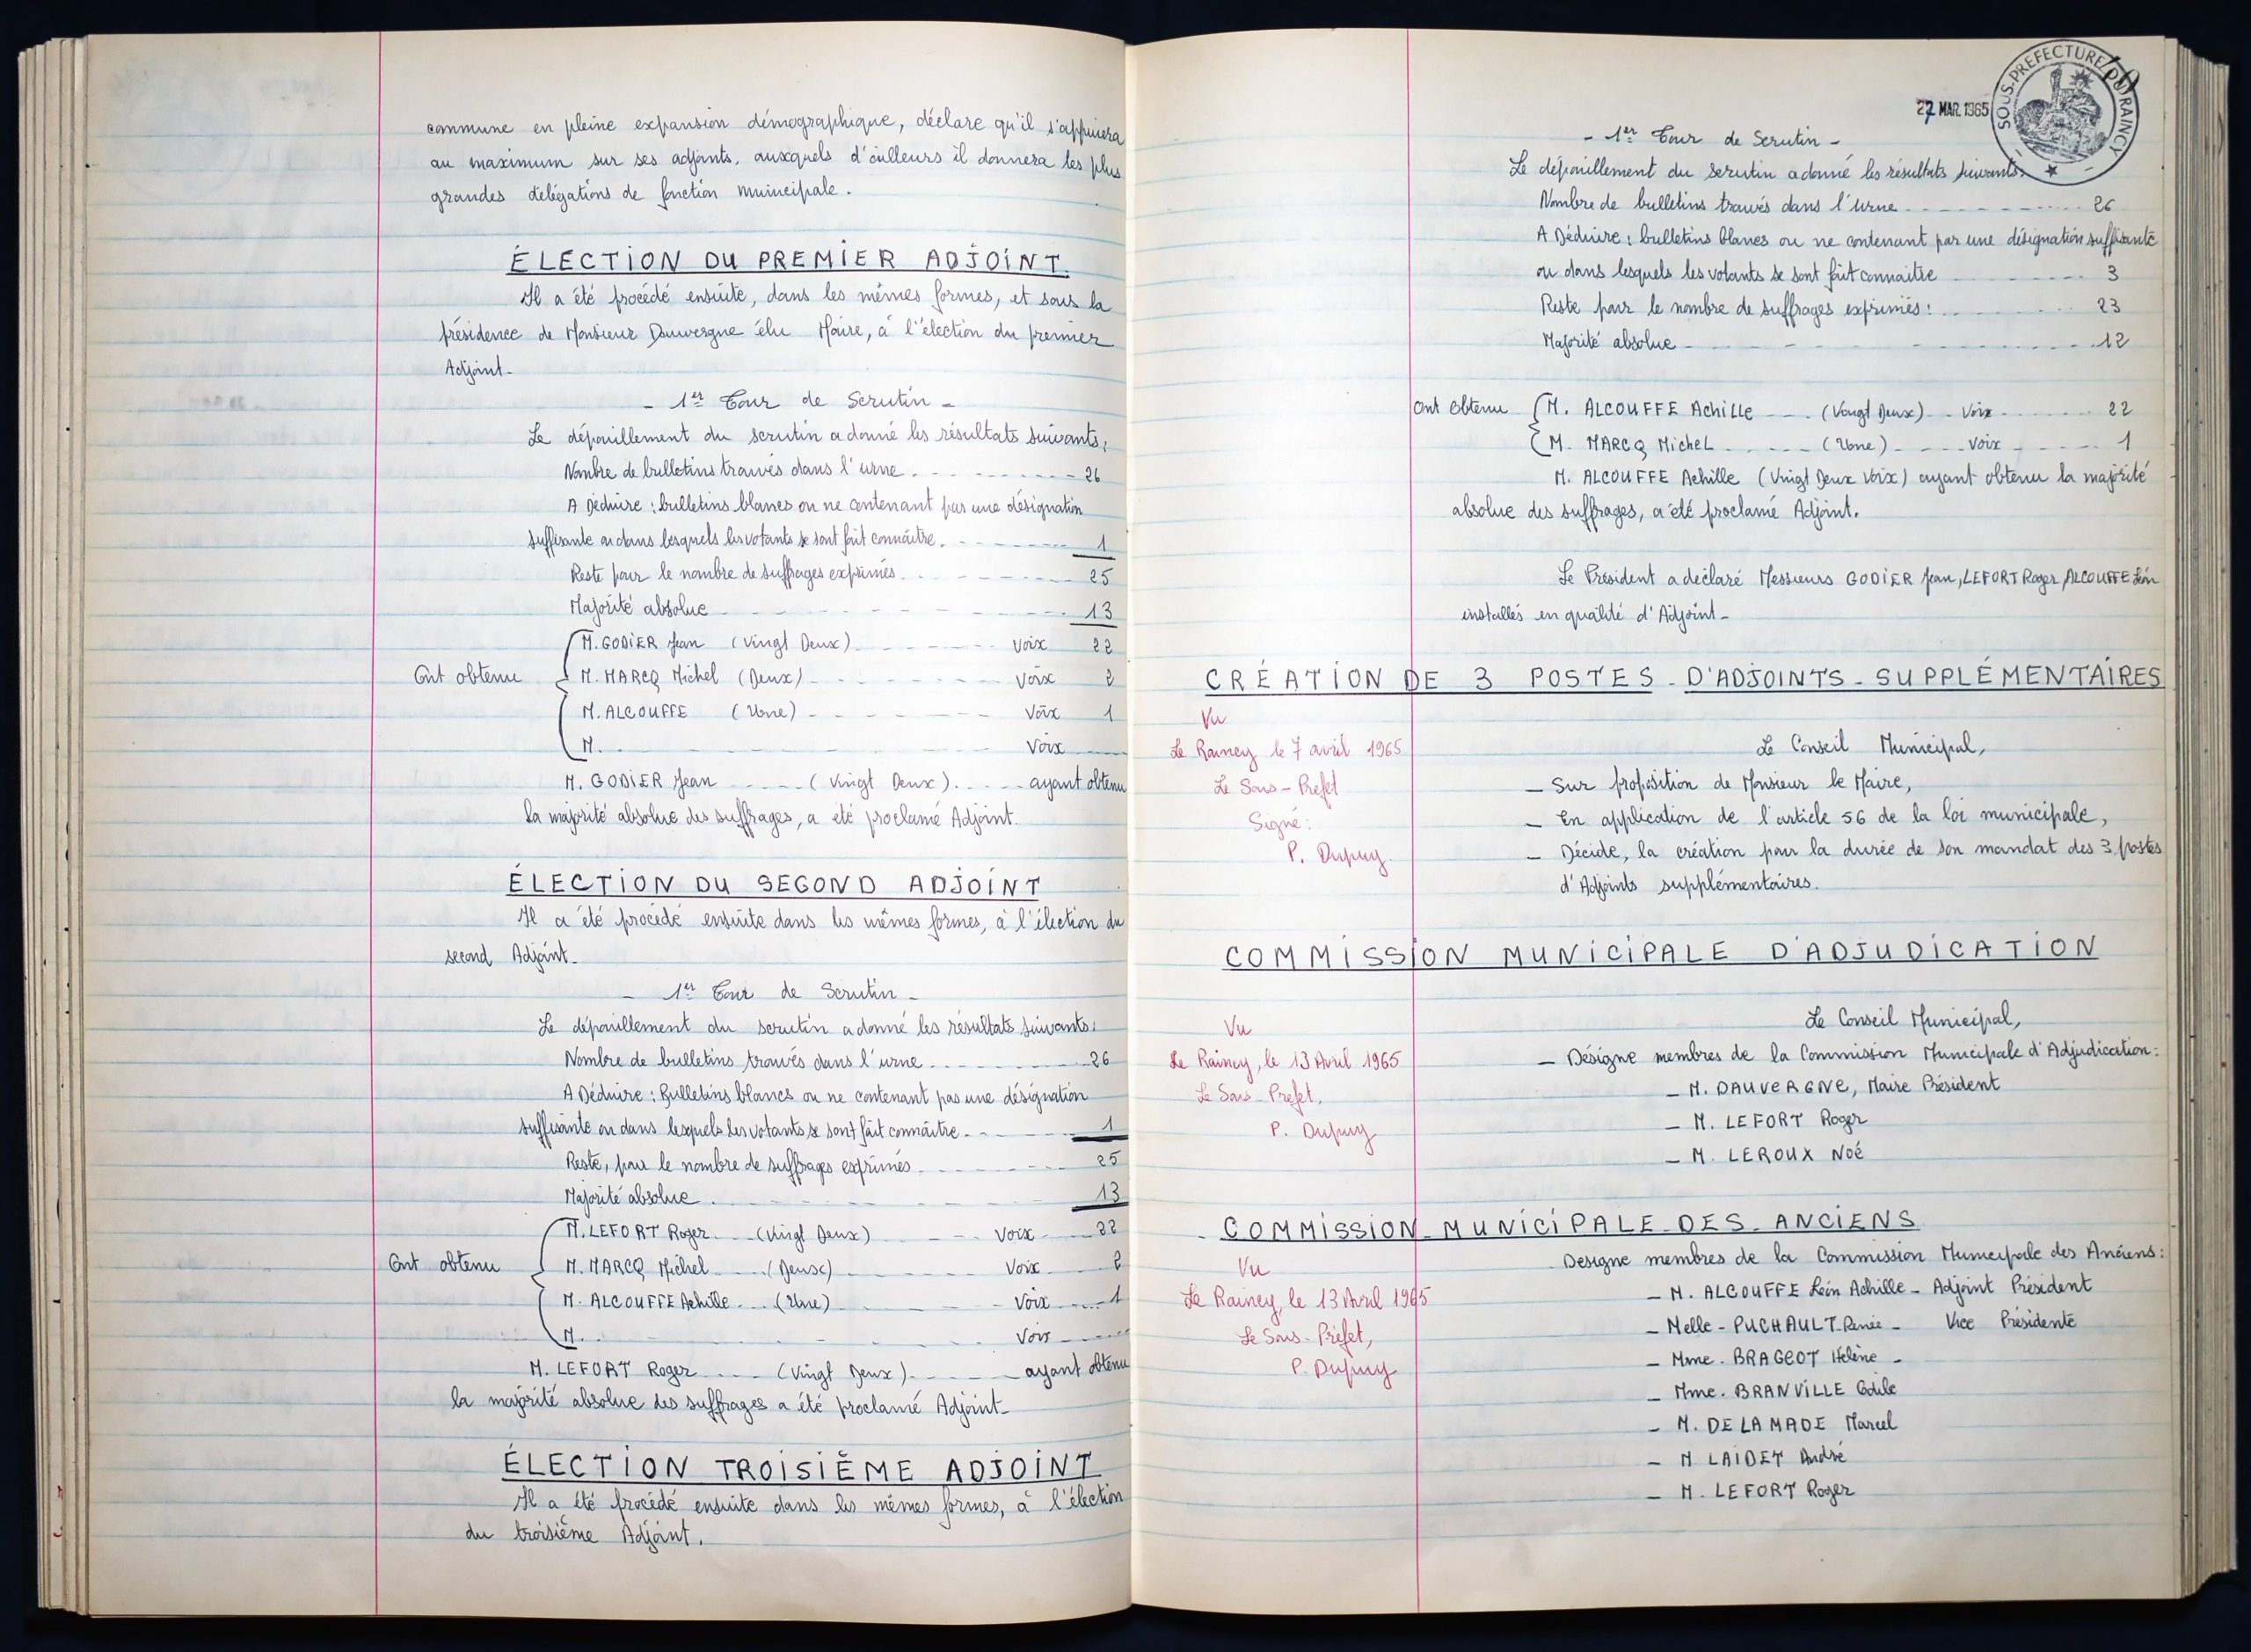 commune en pleine expansion démographique, déclare qu'il s'appuiera
au maximum sur ses adjoints, auxquels d'ailleurs il donnera les plus
grandes délégations de fonction municipale.
ÉLECTION DU PREMIER ADJOINT.
Il a été procédé ensuite, dans les mêmes formes, et sous la
présidence de Monsieur Dauvergne élu Maire, à l'élection du premier
Adjoint-
- 1er Tour de Scrutin -
Le dépouillement du scrutin a donné les résultats suivants:
Nombre de bulletins trouvés dans l'urne. - - - - 26
A Déduire : bulletins blancs ou ne contenant pas une désignation
suffisante ou dans lesquels les votants se sont fait connaître. - - - - 1
Reste pour le nombre de suffrages exprimés. - - - - 25
Majorité absolue - - - - 13
Ont obtenu
M. GODIER Jean (Vingt Deux) - - - - Voix 22
M. MARCQ Michel (Deux) - - - - Voix 2
M. ALCOUFFE (Une) - - - - Voix 1
M. - - - - Voix
M. GODIER Jean - - - - (Vingt Deux) - - - - ayant obtenu
la majorité absolue des suffrages, a été proclamé Adjoint.
ÉLECTION DU SECOND ADJOINT
Il a été procédé ensuite dans les mêmes formes, à l'élection du
second Adjoint-
- 1er Tour de Scrutin -
Le dépouillement du scrutin a donné les résultats suivants:
Nombre de bulletins trouvés dans l'urne. - - - - 26
A Déduire : Bulletins blancs ou ne contenant pas une désignation
suffisante ou dans lesquels les votants se sont fait connaître. - - - - 1
Reste, pour le nombre de suffrages exprimés - - - - 25
Majorité absolue. - - - - 13
Ont obtenu
M. LEFORT Roger - - - - (Vingt Deux) - - - - Voix 22
M. MARCQ Michel - - - - (Deux) - - - - Voix 2
M. ALCOUFFE Achille - - - - (Une) - - - - Voix 1
M. - - - - Voix
M. LEFORT Roger - - - - (Vingt Deux) - - - - ayant obtenu
la majorité absolue des suffrages a été proclamé Adjoint-
ÉLECTION TROISIÈME ADJOINT
Il a été procédé ensuite dans les mêmes formes, à l'élection
du troisième Adjoint.
27 MAR. 1965
SOUS-PREFECTURE DU RAINCY
- 1er Tour de Scrutin -
Le dépouillement du scrutin a donné les résultats suivants:
Nombre de bulletins trouvés dans l'urne - - - - 26
A Déduire : bulletins blancs ou ne contenant pas une désignation suffisante
ou dans lesquels les votants se sont fait connaitre - - - - 3
Reste pour le nombre de suffrages exprimés : - - - - 23
Majorité absolue - - - - 12
Ont obtenu
M. ALCOUFFE Achille - - - - (Vingt Deux) - - Voix - - - - 22
M. MARCQ Michel - - - - (Une) - - - - Voix - - - - 1
M. ALCOUFFE Achille (Vingt Deux Voix) ayant obtenu la majorité
absolue des suffrages, a été proclamé Adjoint.
Le Président a déclaré Messieurs GODIER Jean, LEFORT Roger, ALCOUFFE Léon
installés en qualité d'Adjoint-
CRÉATION DE 3 POSTES - D'ADJOINTS - SUPPLÉMENTAIRES
Vu
Le Raincy le 7 avril 1965
Le Sous-Préfet
Signé:
P. Dupuy.
Le Conseil Municipal,
- Sur proposition de Monsieur le Maire,
- En application de l'article 56 de la loi municipale,
- Décide, la création pour la durée de son mandat des 3 postes
d'Adjoints supplémentaires.
COMMISSION MUNICIPALE D'ADJUDICATION
Vu
Le Raincy, le 13 Avril 1965
Le Sous-Préfet,
P. Dupuy
Le Conseil Municipal,
- Désigne membres de la Commission Municipale d'Adjudication:
- M. DAUVERGNE, Maire Président
- M. LEFORT Roger
- M. LEROUX Noé
- COMMISSION - MUNICIPALE - DES - ANCIENS
Vu
Le Raincy, le 13 Avril 1965
Le Sous-Préfet,
P. Dupuy
Designe membres de la Commission Municipale des Anciens:
- M. ALCOUFFE Léon Achille - Adjoint Président
- Melle - PUCHAULT Renée - Vice Présidente
- Mme. BRAGEOT Hélène -
- Mme. BRANVILLE Odile
- M. DELAMADE Marcel
- M LAIDET André
- M. LEFORT Roger